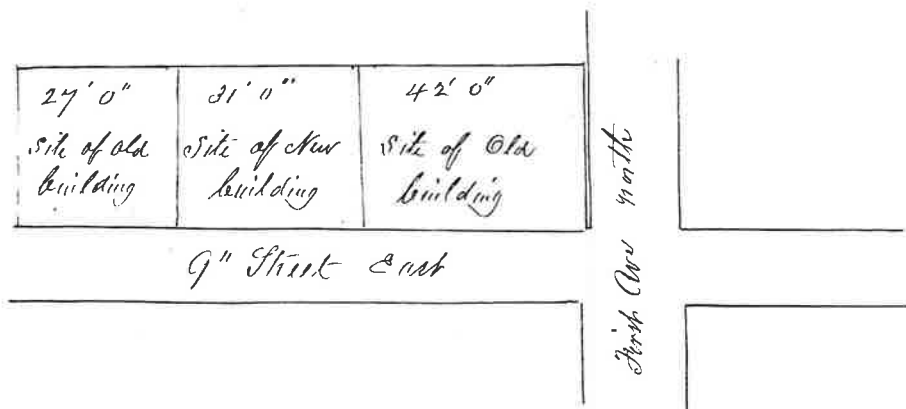 27' 0"
Site of old
building
31' 0"
Site of New
building
42' 0"
Site of Old
building
9" Street East
First Ave North